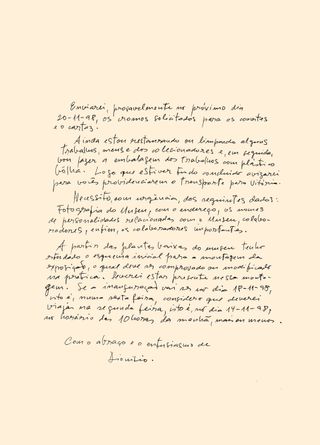 Enviarei, provavelmente no próximo dia
20-11-98, os cromos solicitados para os convites
e o cartaz.
Ainda estou restaurando ou limpando alguns
trabalhos, meus e dos colecionadores e, em seguida,
vou fazer a embalagem dos trabalhos com plástico
bolha. Logo que estiver tudo concluido avisarei
para vocês providenciarem o transporte para Vitória.
Necessito, com urgência, dos seguintes dados:
Fotografia do Museu, com o endereço, os nomes
de personalidades relacionadas com o Museu, colabo-
radores, enfim, os colaboradores importantes.
A partir das plantas baixas do museu tenho
estudado o esquema inicial para a montagem da
exposição, o qual deve ser comprovado ou modificado
na prática. Deverei estar presente nessa monta-
gem. Se a inauguração vai ser no dia 18-11-98,
isto é, numa sexta feira, considero que deverei
viajar na segunda feira, isto é, no dia 14-11-98,
no horário das 10 horas da manhã, mais ou menos.
Com o abraço e o entusiasmo de
Dionísio.